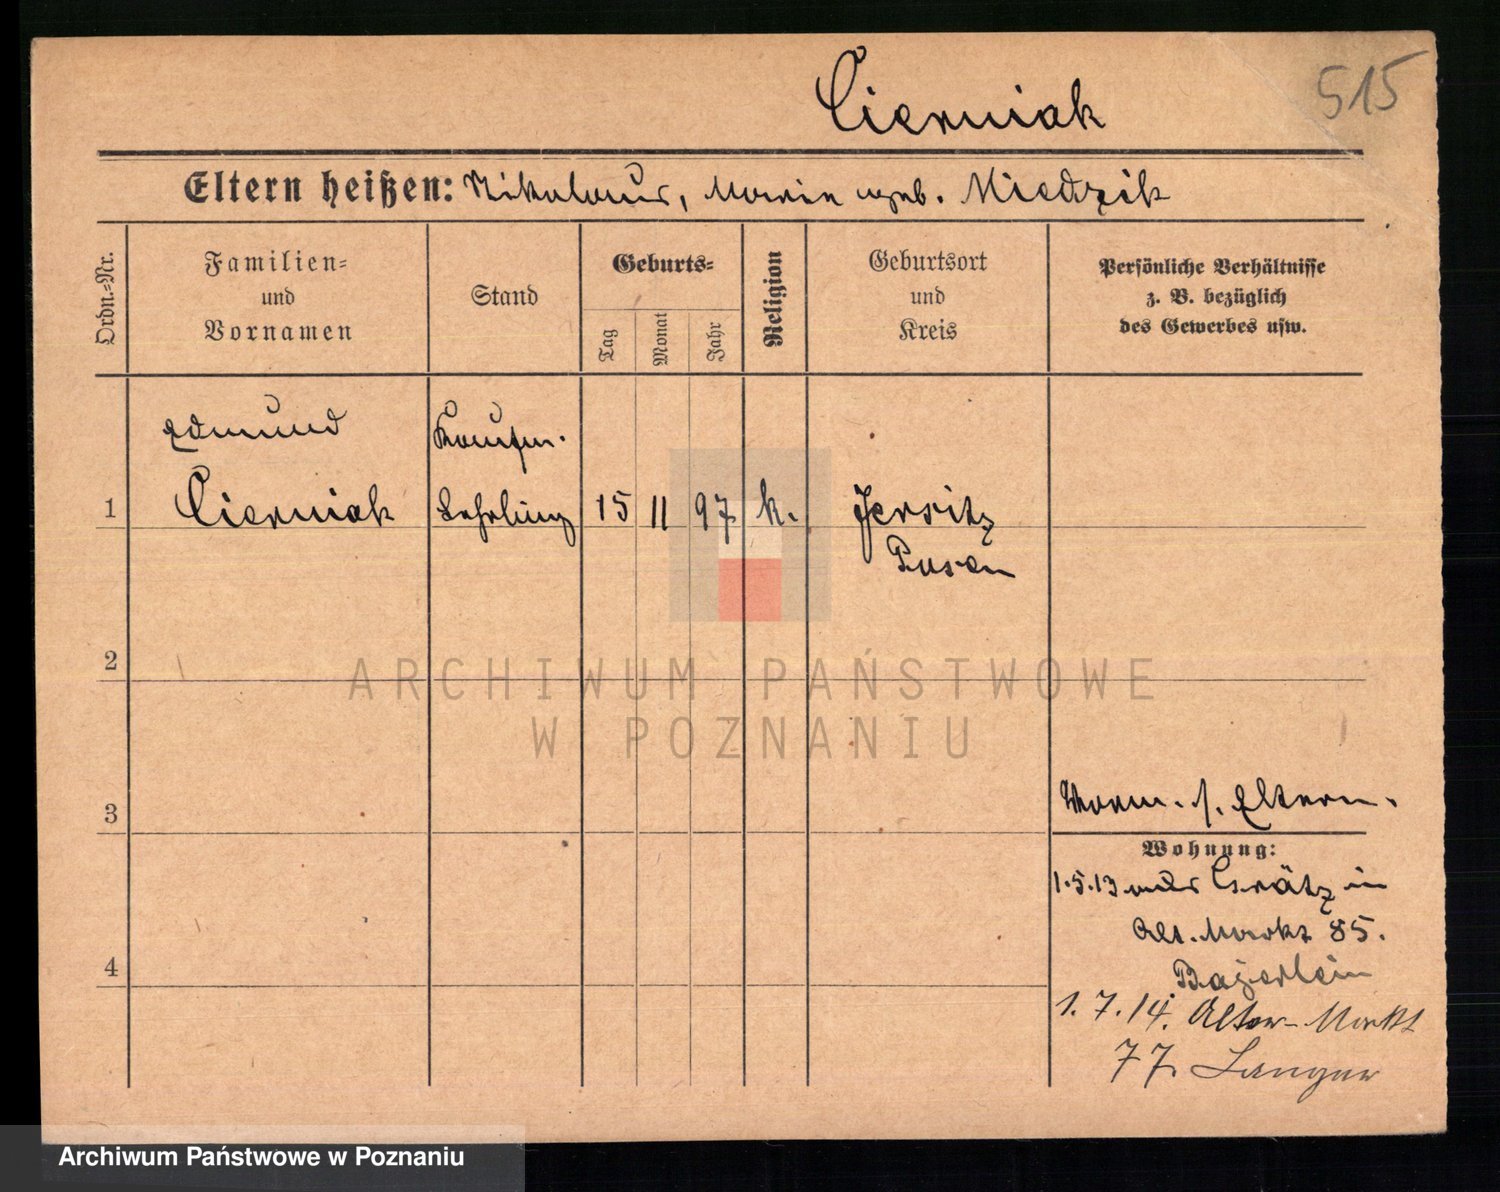 Cierniak
515
Eltern heißen: Nikolaus, Maria geb. Miedzik
Ordn.-Nr.
Familien- und Vornamen
Stand
Geburts-
Tag
Monat
Jahr
Religion
Geburtsort und Kreis
Persönliche Verhältnisse z. B. bezüglich des Gewerbes usw.
Edmund
Kaufm.
1 Cierniak Lehrling 15 11 97 k. Jersitz
Posen
2
ARCHIWUM PAŃSTWOWE
W POZNANIU
3
Verm. s. Eltern.
Wohnung:
1.5.13 aus Grätz in
Alt. Markt 85.
Bajerlein
4
1.7.14. Alter-Markt
77. Langner
Archiwum Państwowe w Poznaniu